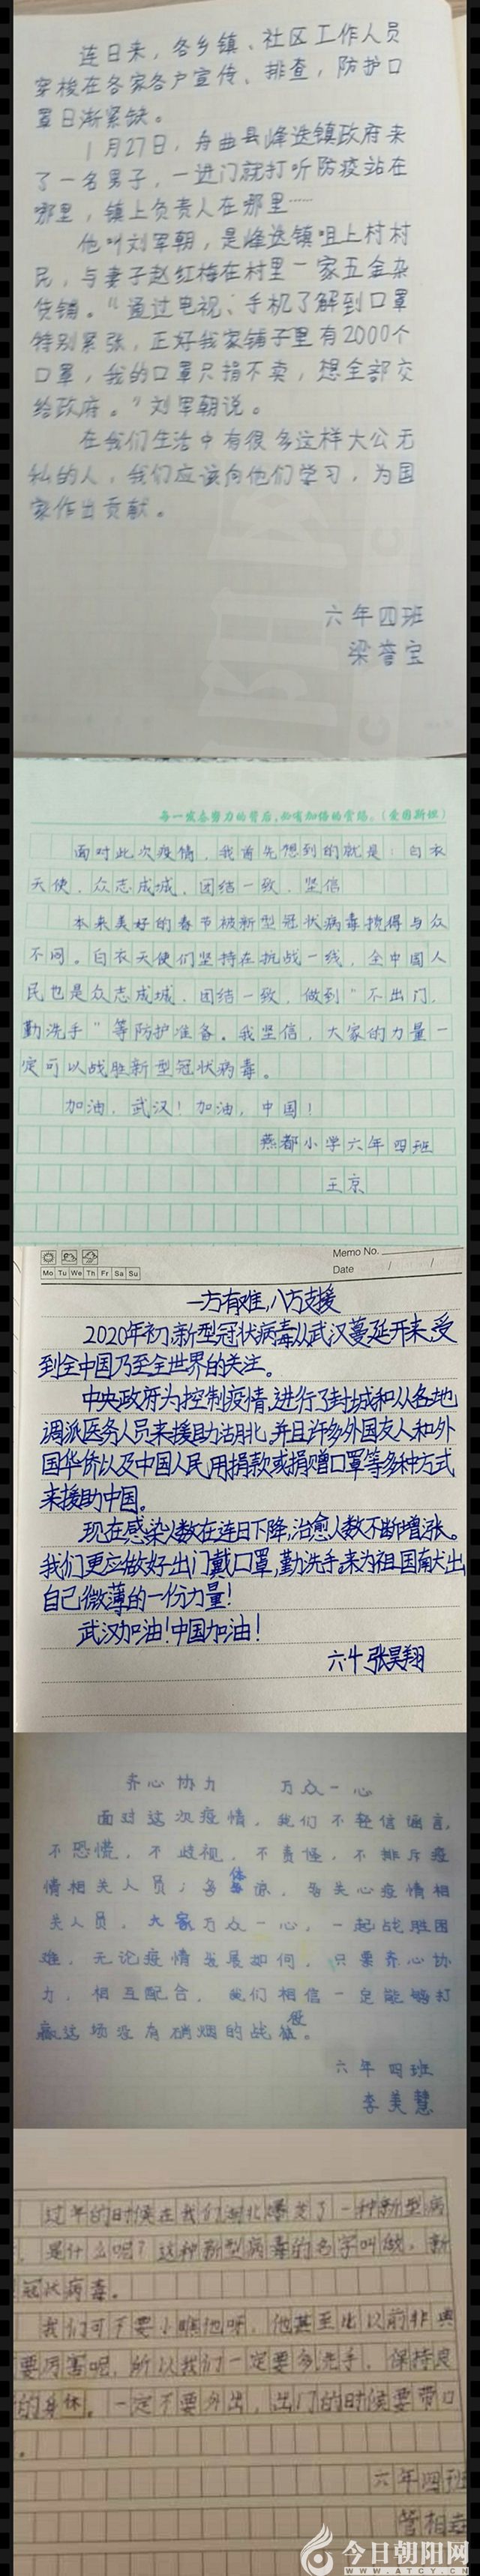 连日来，各乡镇、社区工作人员
穿梭在各家各户宣传、排查，防护口
罩日渐紧缺。
1月27日，舟曲县峰迭镇政府来
了一名男子，一进门就打听防疫站在
哪里，镇上负责人在哪里……
他叫刘军朝，是峰迭镇咀上村村
民，与妻子赵红梅在村里一家五金杂
货铺。“通过电视、手机了解到口罩
特别紧张，正好我家铺子里有2000个
口罩，我的口罩只捐不卖，想全部交
给政府。”刘军朝说。
在我们生活中有很多这样大公无
私的人，我们应该向他们学习，为国
家作出贡献。
六年四班
梁誉宝
每一发奋努力的背后，必有加倍的赏赐。(爱因斯坦)
面对此次疫情，我首先想到的就是：白衣
天使，众志成城，团结一致，坚信
本来美好的春节被新型冠状病毒搅得与众
不同。白衣天使们坚持在抗战一线，全中国人
民也是众志成城，团结一致，做到“不出门，
勤洗手”等防护准备。我坚信，大家的力量一
定可以战胜新型冠状病毒。
加油，武汉！加油，中国！
燕都小学六年四班
王京
Memo No.
Mo Tu We Th Fr Sa Su
Date
一方有难，八方支援
2020年初，新型冠状病毒从武汉蔓延开来，受
到全中国乃至全世界的关注。
中央政府为控制疫情，进行了封城和从各地
调派医务人员来援助湖北，并且许多外国友人和外
国华侨以及中国人民，用捐款或捐赠口罩等多种方式
来援助中国。
现在感染人数在连日下降，治愈人数不断增涨。
我们更应做好出门戴口罩，勤洗手，来为祖国献出
自己微薄的一份力量！
武汉加油！中国加油！
六.4 张昊翔
齐心协力 万众一心
面对这次疫情，我们不轻信谣言，
不恐慌，不歧视，不责怪，不排斥疫
情相关人员；多体谅，多关心疫情相
关人员，大家万众一心，一起战胜困
难，无论疫情发展如何，只要齐心协
力，相互配合，我们相信一定能够打
赢这场没有硝烟的战役。
六年四班
李美慧
过年的时候在我们湖北爆发了一种新型病
，是什么呢？这种新型病毒的名字叫做，新
冠状病毒。
我们可不要小瞧他呀，他甚至比以前非典
要厉害呢，所以我们一定要多洗手，保持良
的身休。一定不要外出，出门的时候要带口
。
六年四班
管相
今日朝阳网
WWW.ATCY.CN